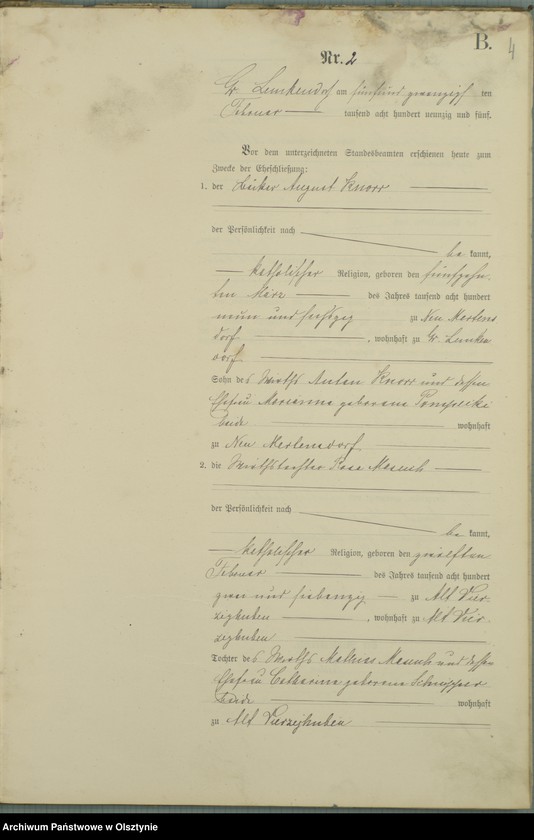 B.
4
Nr. 2
Gr Lemkendorf am fünfund zwanzigsten
Februar tausend acht hundert neunzig und fünf.
Vor dem unterzeichneten Standesbeamten erschienen heute zum
Zwecke der Eheschließung:
1. der August Knorr
der Persönlichkeit nach
be kannt,
katholischer Religion, geboren den fünfzehn
ten März des Jahres tausend acht hundert
neun und sechszig zu Neu Mertens
dorf, wohnhaft zu Gr. Lemken
dorf
Sohn des Wirths Anton Knorr und dessen
Ehefrau Marianna geborene
Beide wohnhaft
zu Neu Mertensdorf
2. die Wirthstochter Rosa
der Persönlichkeit nach
be kannt,
katholischer Religion, geboren den zwölften
Februar des Jahres tausend acht hundert
zwei und siebenzig zu Alt Vier
zighuben, wohnhaft zu Alt Vier
zighuben
Tochter des Wirths und dessen
Ehefrau Catharina geborene
Beide wohnhaft
zu Alt Vierzighuben
Archiwum Państwowe w Olsztynie